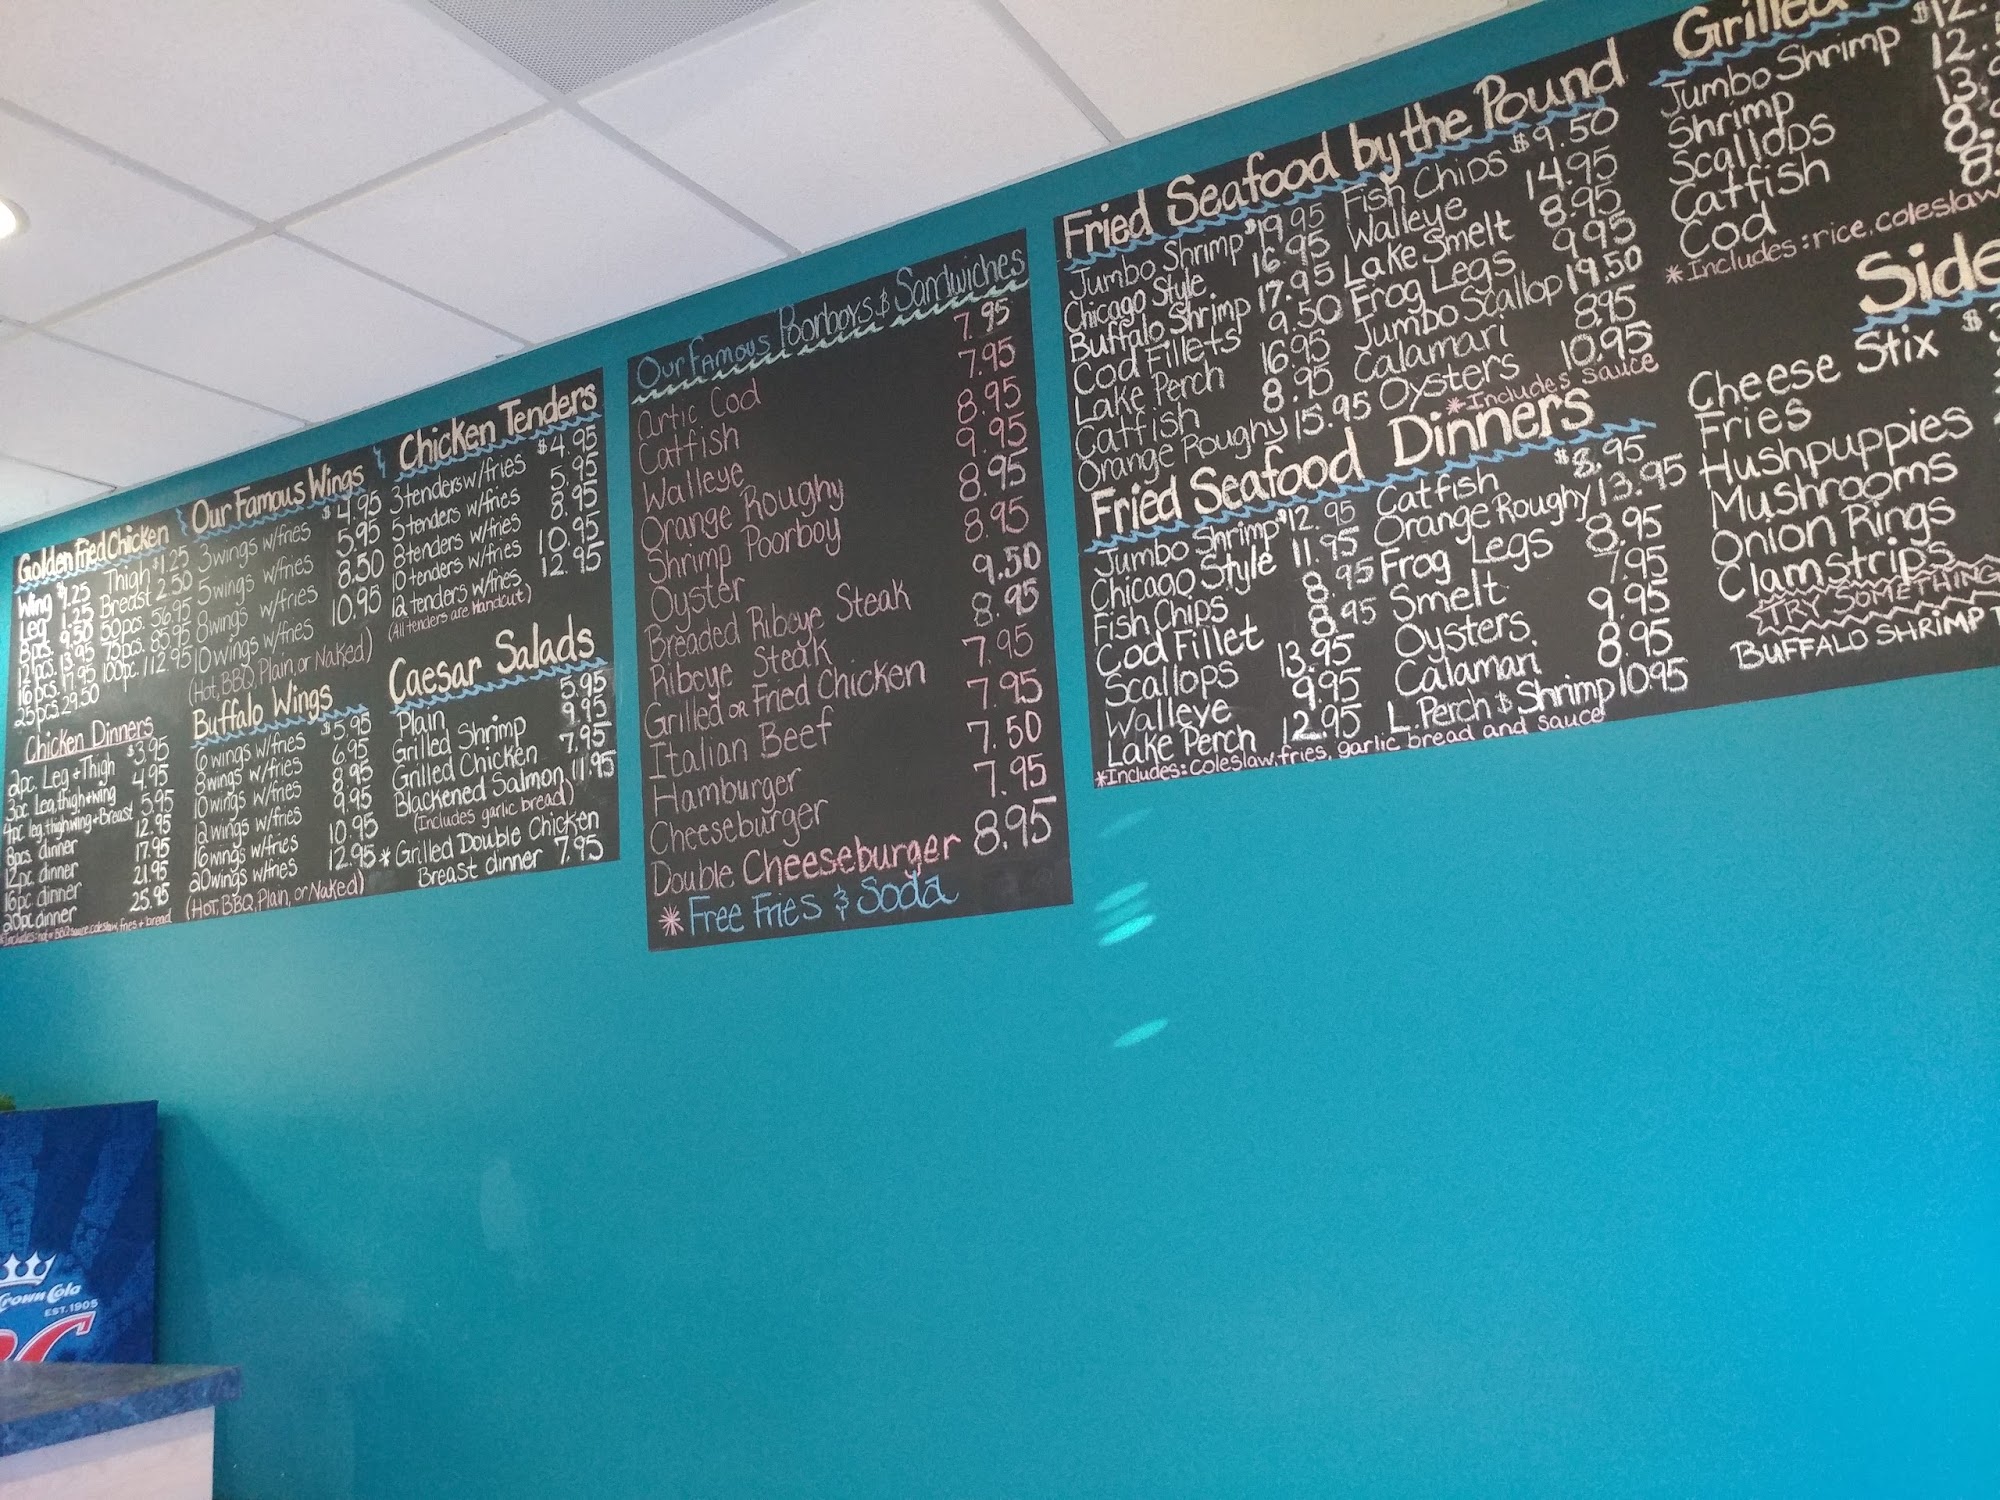 Golden Fried Chicken
Wing $1.25 Thigh $1.25
Leg 1.25 Breast 2.50
8pcs. 9.50 50pcs. 56.95
12pcs. 13.95 75pcs. 85.95
16pcs. 17.95 100pc. 112.95
25pcs 29.50
Chicken Dinners
2pc. Leg + Thigh $3.95
3pc Leg, thigh + wing 4.95
4pc leg, thigh wing + Breast 5.95
8pcs. dinner 12.95
12pc dinner 17.95
16pc dinner 21.95
20pc dinner 25.95
Our Famous Wings
3 wings w/fries $4.95
5 wings w/fries 5.95
8 wings w/fries 8.50
10 wings w/fries 10.95
(Hot, BBQ, Plain, or Naked)
Buffalo Wings
6 wings w/fries $5.95
8 wings w/fries 6.95
10 wings w/fries 8.95
12 wings w/fries 9.95
16 wings w/fries 10.95
20 wings w/fries 12.95
(HOT, BBQ, Plain, or Naked)
Chicken Tenders
3 tenders w/fries $4.95
5 tenders w/fries 5.95
8 tenders w/fries 8.95
10 tenders w/fries 10.95
12 tenders w/fries 12.95
(All tenders are Handcut)
Caesar Salads
Plain 5.95
Grilled Shrimp 9.95
Grilled Chicken 7.95
Blackened Salmon 11.95
(Includes garlic bread)
* Grilled Double Chicken
Breast dinner 7.95
Our Famous Poorboys & Sandwiches
Artic Cod 7.95
Catfish 7.95
Walleye 8.95
Orange Roughy 9.95
Shrimp Poorboy 8.95
Oyster 8.95
Breaded Ribeye Steak 9.50
Ribeye Steak 8.95
Grilled or Fried Chicken 7.95
Italian Beef 7.95
Hamburger 7.50
Cheeseburger 7.95
Double Cheeseburger 8.95
* Free Fries & Soda
Fried Seafood by the Pound
Jumbo Shrimp $19.95 Fish Chips $9.50
Chicago Style 16.95 Walleye 14.95
Buffalo Shrimp 17.95 Lake Smelt 8.95
Cod Fillets 9.50 Frog Legs 9.95
Lake Perch 16.95 Jumbo Scallop 19.50
Catfish 8.95 Calamari 8.95
Orange Roughy 15.95 Oysters 10.95
* Includes Sauce
Fried Seafood Dinners
Jumbo Shrimp $12.95 Catfish $8.95
Chicago Style 11.95 Orange Roughy 13.95
Fish Chips 8.95 Frog Legs 8.95
Cod Fillet 8.95 Smelt 7.95
Scallops 13.95 Oysters 9.95
Walleye 9.95 Calamari 8.95
Lake Perch 12.95 L. Perch & Shrimp 10.95
* Includes: Coleslaw, fries, garlic bread and sauce
Grilled
Jumbo Shrimp $12.
Shrimp 12.
Scallops 13.
Catfish 8.
Cod 8.
* Includes: rice, coleslaw
Side
Cheese Stix $
Fries
Hushpuppies
Mushrooms
Onion Rings
Clamstrips
TRY SOMETHING
BUFFALO SHRIMP
Crown Cola
EST. 1905